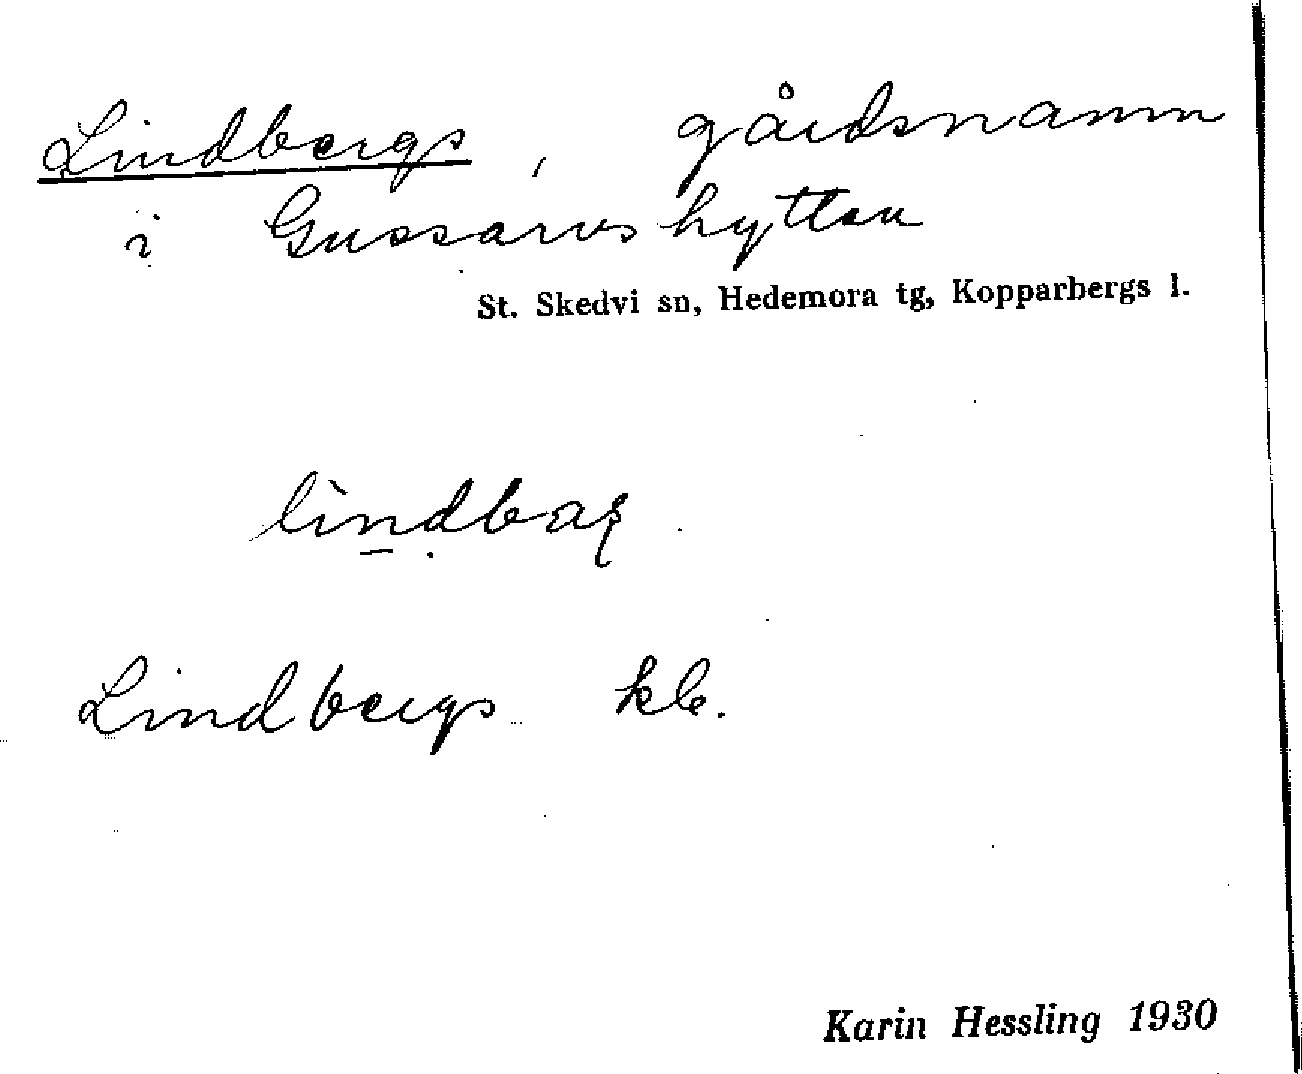 Lindbergs, gårdsnamn
i Gussarvshyttan
St. Skedvi sn, Hedemora tg, Kopparbergs l.
Lindbergs kb.
Karin Hessling 1930